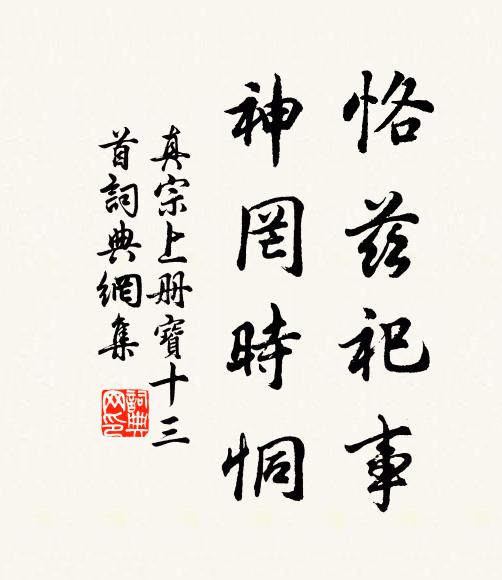 恪茲祀事
神罔時恫
真宗上册寶十三
首詞典網集
詞典
网印